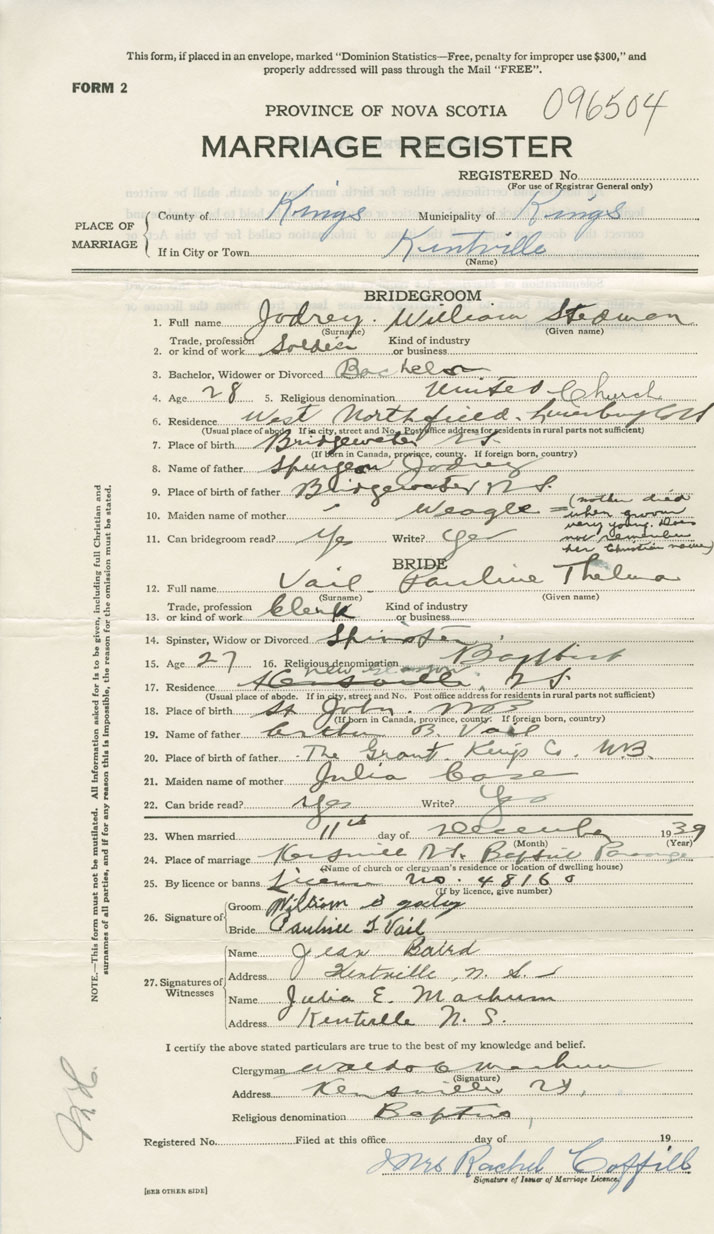 This form, if placed in an envelope, marked "Dominion Statistics—Free, penalty for improper use $300," and
properly addressed will pass through the Mail "FREE".
FORM 2
096504
PROVINCE OF NOVA SCOTIA
MARRIAGE REGISTER
REGISTERED No.
(For use of Registrar General only)
PLACE OF MARRIAGE
County of Kings Municipality of Kings
If in City or Town Kentville
(Name)
BRIDEGROOM
1. Full name Jodrey William Stedman
(Surname) (Given name)
Trade, profession Kind of industry
2. or kind of work Soldier or business
3. Bachelor, Widower or Divorced Bachelor
4. Age 28 5. Religious denomination United Church
6. Residence West Northfield, Lunenburg Co
(Usual place of abode. If in city, street and No. Post office address for residents in rural parts not sufficient)
7. Place of birth Bridgewater N.S.
(If born in Canada, province, county. If foreign born, country)
8. Name of father Spurgeon Jodrey
9. Place of birth of father Bridgewater N.S.
10. Maiden name of mother Weagle = (mother died
when groom
very young. Does
not remember
her Christian name)
11. Can bridegroom read? Yes Write? Yes
BRIDE
12. Full name Vail Pauline Thelma
(Surname) (Given name)
Trade, profession Kind of industry
13. or kind of work Clerk or business
14. Spinster, Widow or Divorced Spinster
15. Age 27 16. Religious denomination Baptist
17. Residence N.S.
(Usual place of abode. If in city, street and No. Post office address for residents in rural parts not sufficient)
18. Place of birth St John. N.B.
(If born in Canada, province, county. If foreign born, country)
19. Name of father B. Vail
20. Place of birth of father The Grant Kings Co. N.B.
21. Maiden name of mother Julia Case
22. Can bride read? Yes Write? Yes
23. When married 11th day of December 1939
(Month) (Year)
24. Place of marriage Kentville N.S. Baptist Parsonage
(Name of church or clergyman's residence or location of dwelling house)
25. By licence or banns License no. 48160
(If by licence, give number)
26. Signature of
Groom William S
Bride Pauline T Vail
27. Signatures of Witnesses
Name Jean Baird
Address Kentville, N. S.
Name Julia E. Machum
Address Kentville N. S.
I certify the above stated particulars are true to the best of my knowledge and belief.
Clergyman Waldo C Machum
(Signature)
Address Kentville N.S.
Religious denomination Baptist
Registered No. Filed at this office day of 19
Mrs Rachel Coffill
Signature of Issuer of Marriage Licence.
[SEE OTHER SIDE]
NOTE.—This form must not be mutilated. All information asked for is to be given, including full Christian and
surnames of all parties, and if for any reason this is impossible, the reason for the omission must be stated.